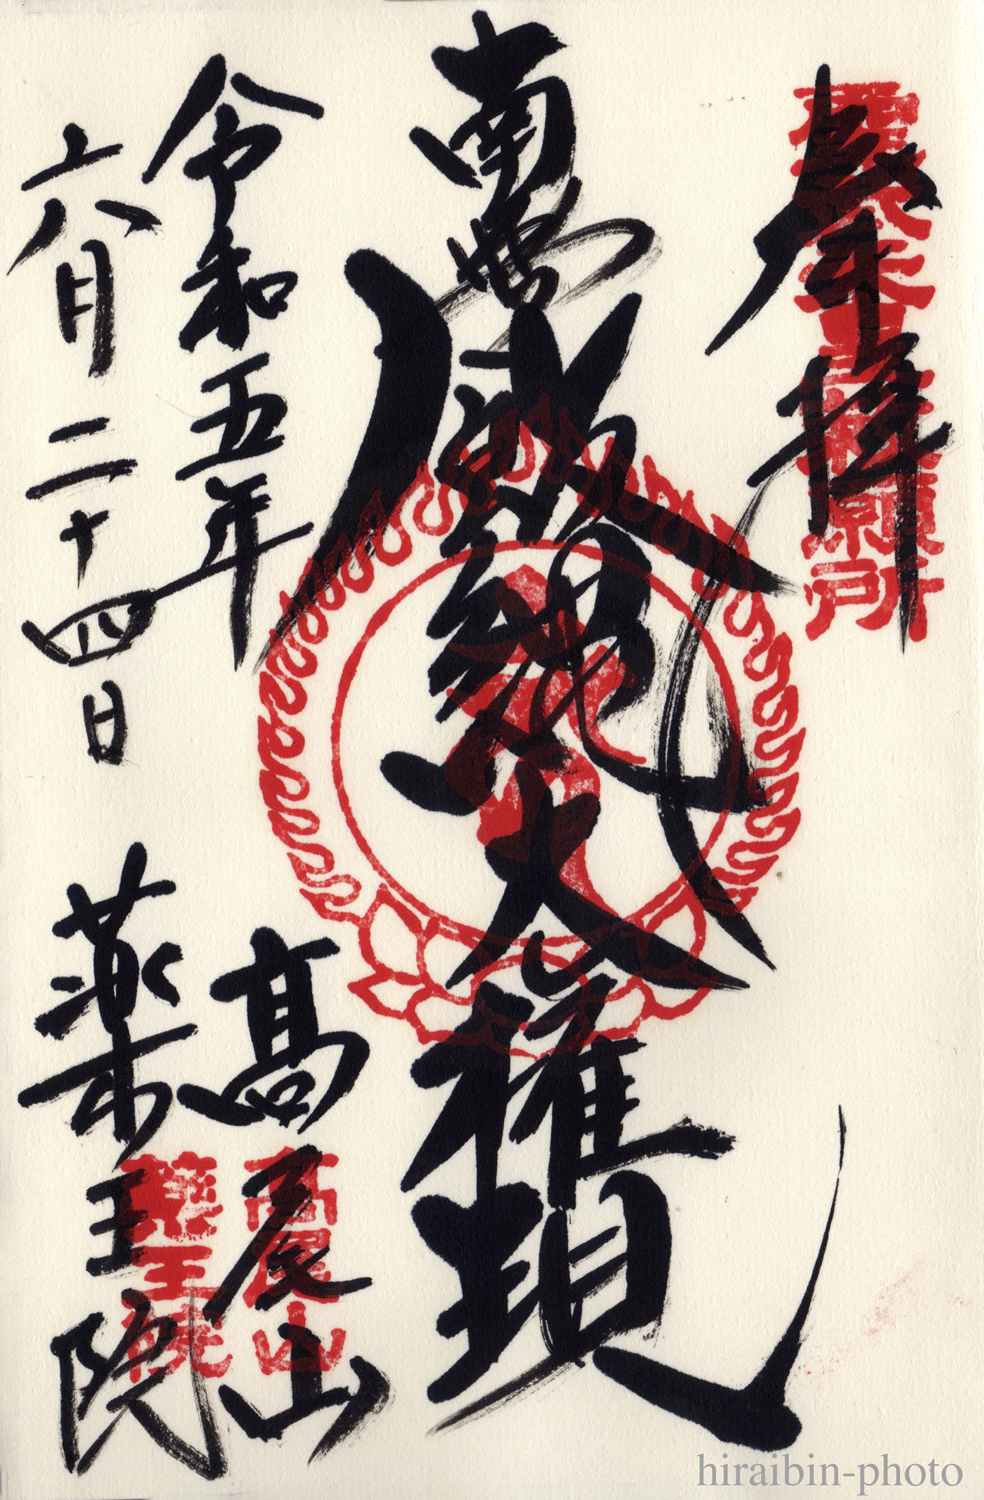 奉拝
南無飯縄大権現
令和五年
六月二十四日
高尾山
薬王院
高尾山
薬王院
hiraibin-photo